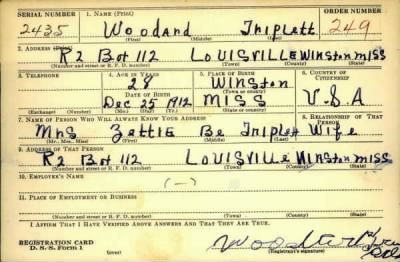 SERIAL NUMBER 1. NAME (Print) ORDER NUMBER
2435 Woodard Triplett 249
(First) (Middle) (Last)
2. ADDRESS (Print)
R2 Bot 112 LOUISVILLE WINSTON MISS
(Number and street or R. F. D. number) (Town) (County) (State)
3. TELEPHONE 4. AGE IN YEARS 5. PLACE OF BIRTH 6. COUNTRY OF CITIZENSHIP
28 WINSTON
DATE OF BIRTH (Town or county)
Dec 25 1912 MISS U.S.A
(Exchange) (Number) (Mo.) (Day) (Yr.) (State or country)
7. NAME OF PERSON WHO WILL ALWAYS KNOW YOUR ADDRESS 8. RELATIONSHIP OF THAT PERSON
Mrs Zettie Be Triplett Wife
(Mr., Mrs., Miss) (First) (Middle) (Last)
9. ADDRESS OF THAT PERSON
R2 Bot 112 LOUISVILLE WINSTON MISS
(Number and street or R. F. D. number) (Town) (County) (State)
10. EMPLOYER'S NAME
(—)
11. PLACE OF EMPLOYMENT OR BUSINESS
(Number and street or R. F. D. number) (Town) (County) (State)
I AFFIRM THAT I HAVE VERIFIED ABOVE ANSWERS AND THAT THEY ARE TRUE.
REGISTRATION CARD
D. S. S. Form 1 (Registrant's signature)